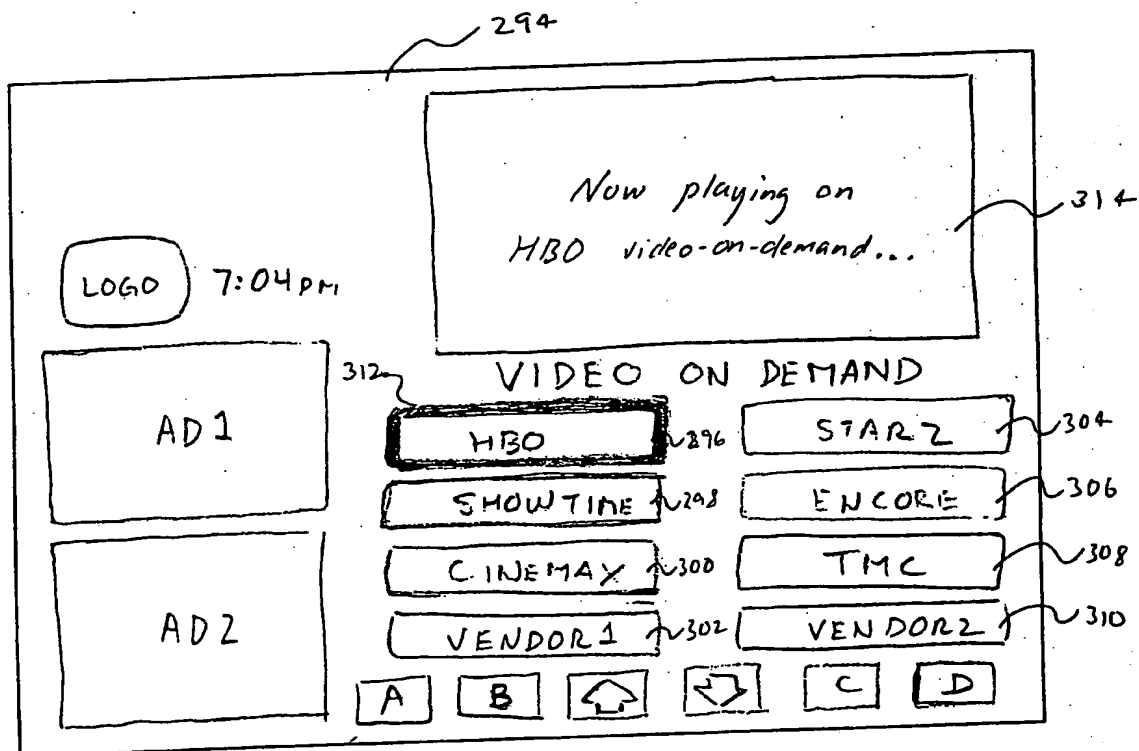 294
Now playing on
HBO video-on-demand...
314
LOGO 7:04 PM
312
VIDEO ON DEMAND
AD1
HBO 296
STARZ 304
SHOWTIME 298
ENCORE 306
CINEMAX 300
TMC 308
AD2
VENDOR1 302
VENDOR2 310
A B C D